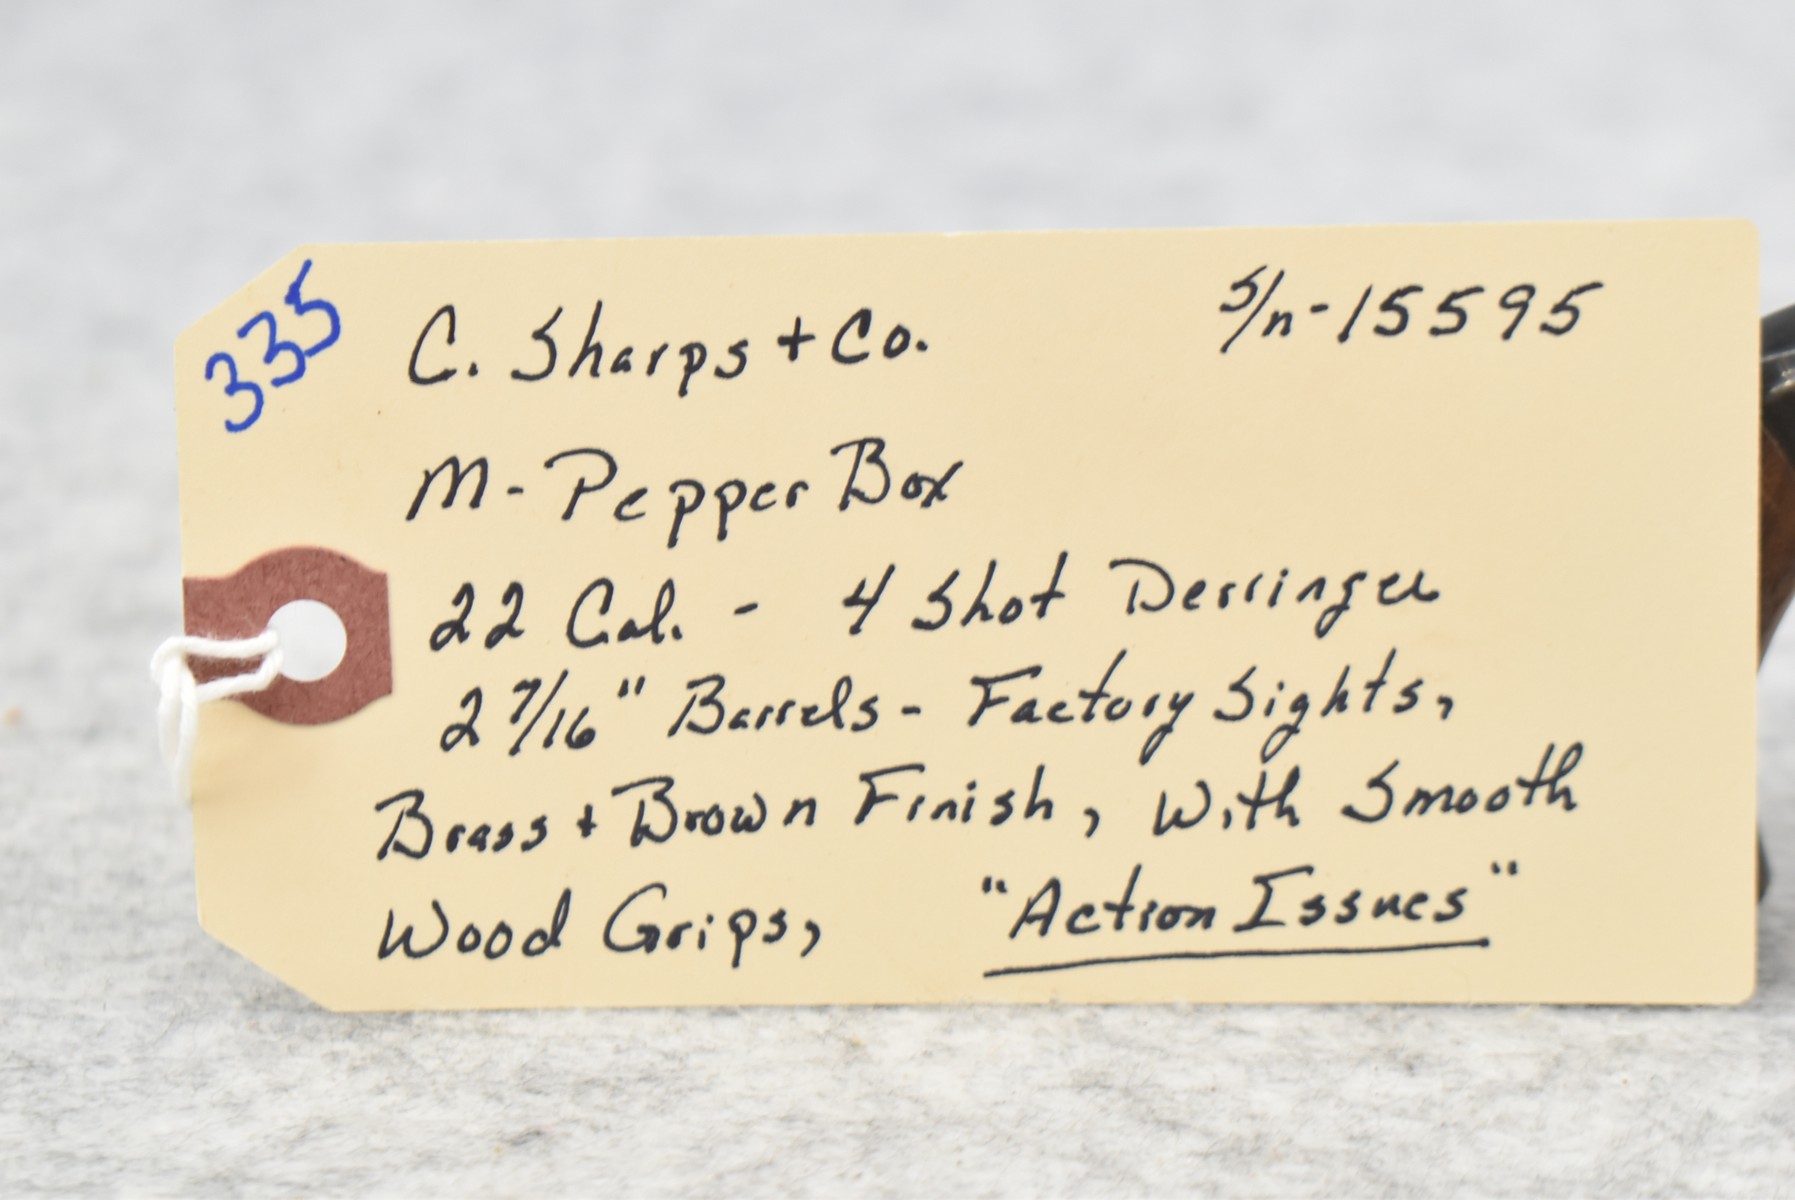 335
C. Sharps + Co. S/n-15595
M-Pepper Box
22 Cal. - 4 Shot Derringer
2 7/16" Barrels - Factory Sights,
Brass + Brown Finish, With Smooth
Wood Grips, "Action Issues"